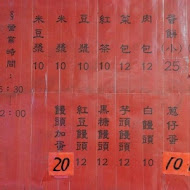 蛋餅小 25
肉包 12
菜包 12
紅茶 10
豆漿 10
米豆漿 12
米漿 10
營業時間
蔥仔蛋 10
白饅頭 10
芋頭饅頭 12
黑糖饅頭 12
紅豆饅頭 12
饅頭加蛋 20